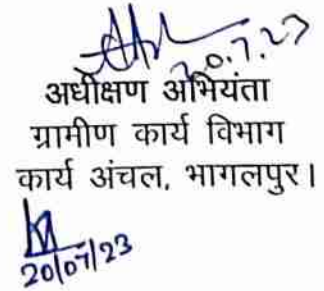 20.7.23
अधीक्षण अभियंता
ग्रामीण कार्य विभाग
कार्य अंचल, भागलपुर।
20/07/23